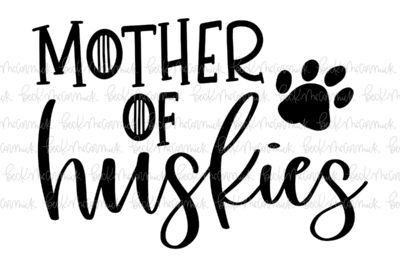 MOTHER
OF
huskies